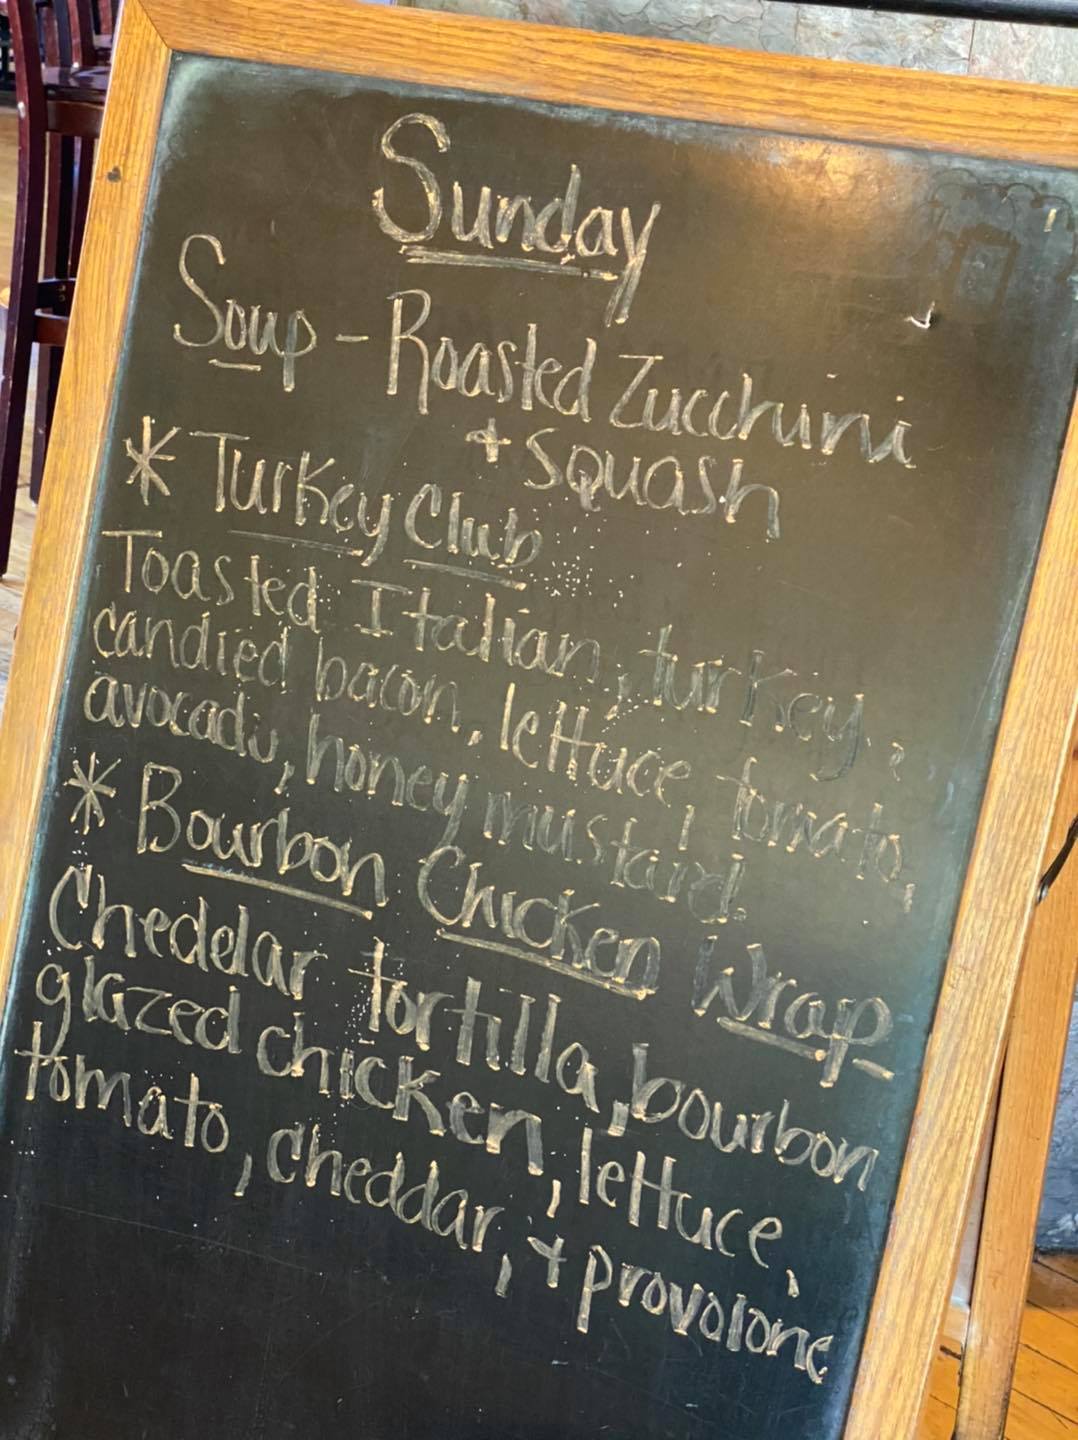 Sunday
Soup - Roasted Zucchini
+ Squash
* Turkey Club
Toasted Italian, turkey,
candied bacon, lettuce, tomato,
avocado, honey mustard.
* Bourbon Chicken Wrap-
Cheddar tortilla, bourbon
glazed chicken, lettuce,
tomato, cheddar, + provolone